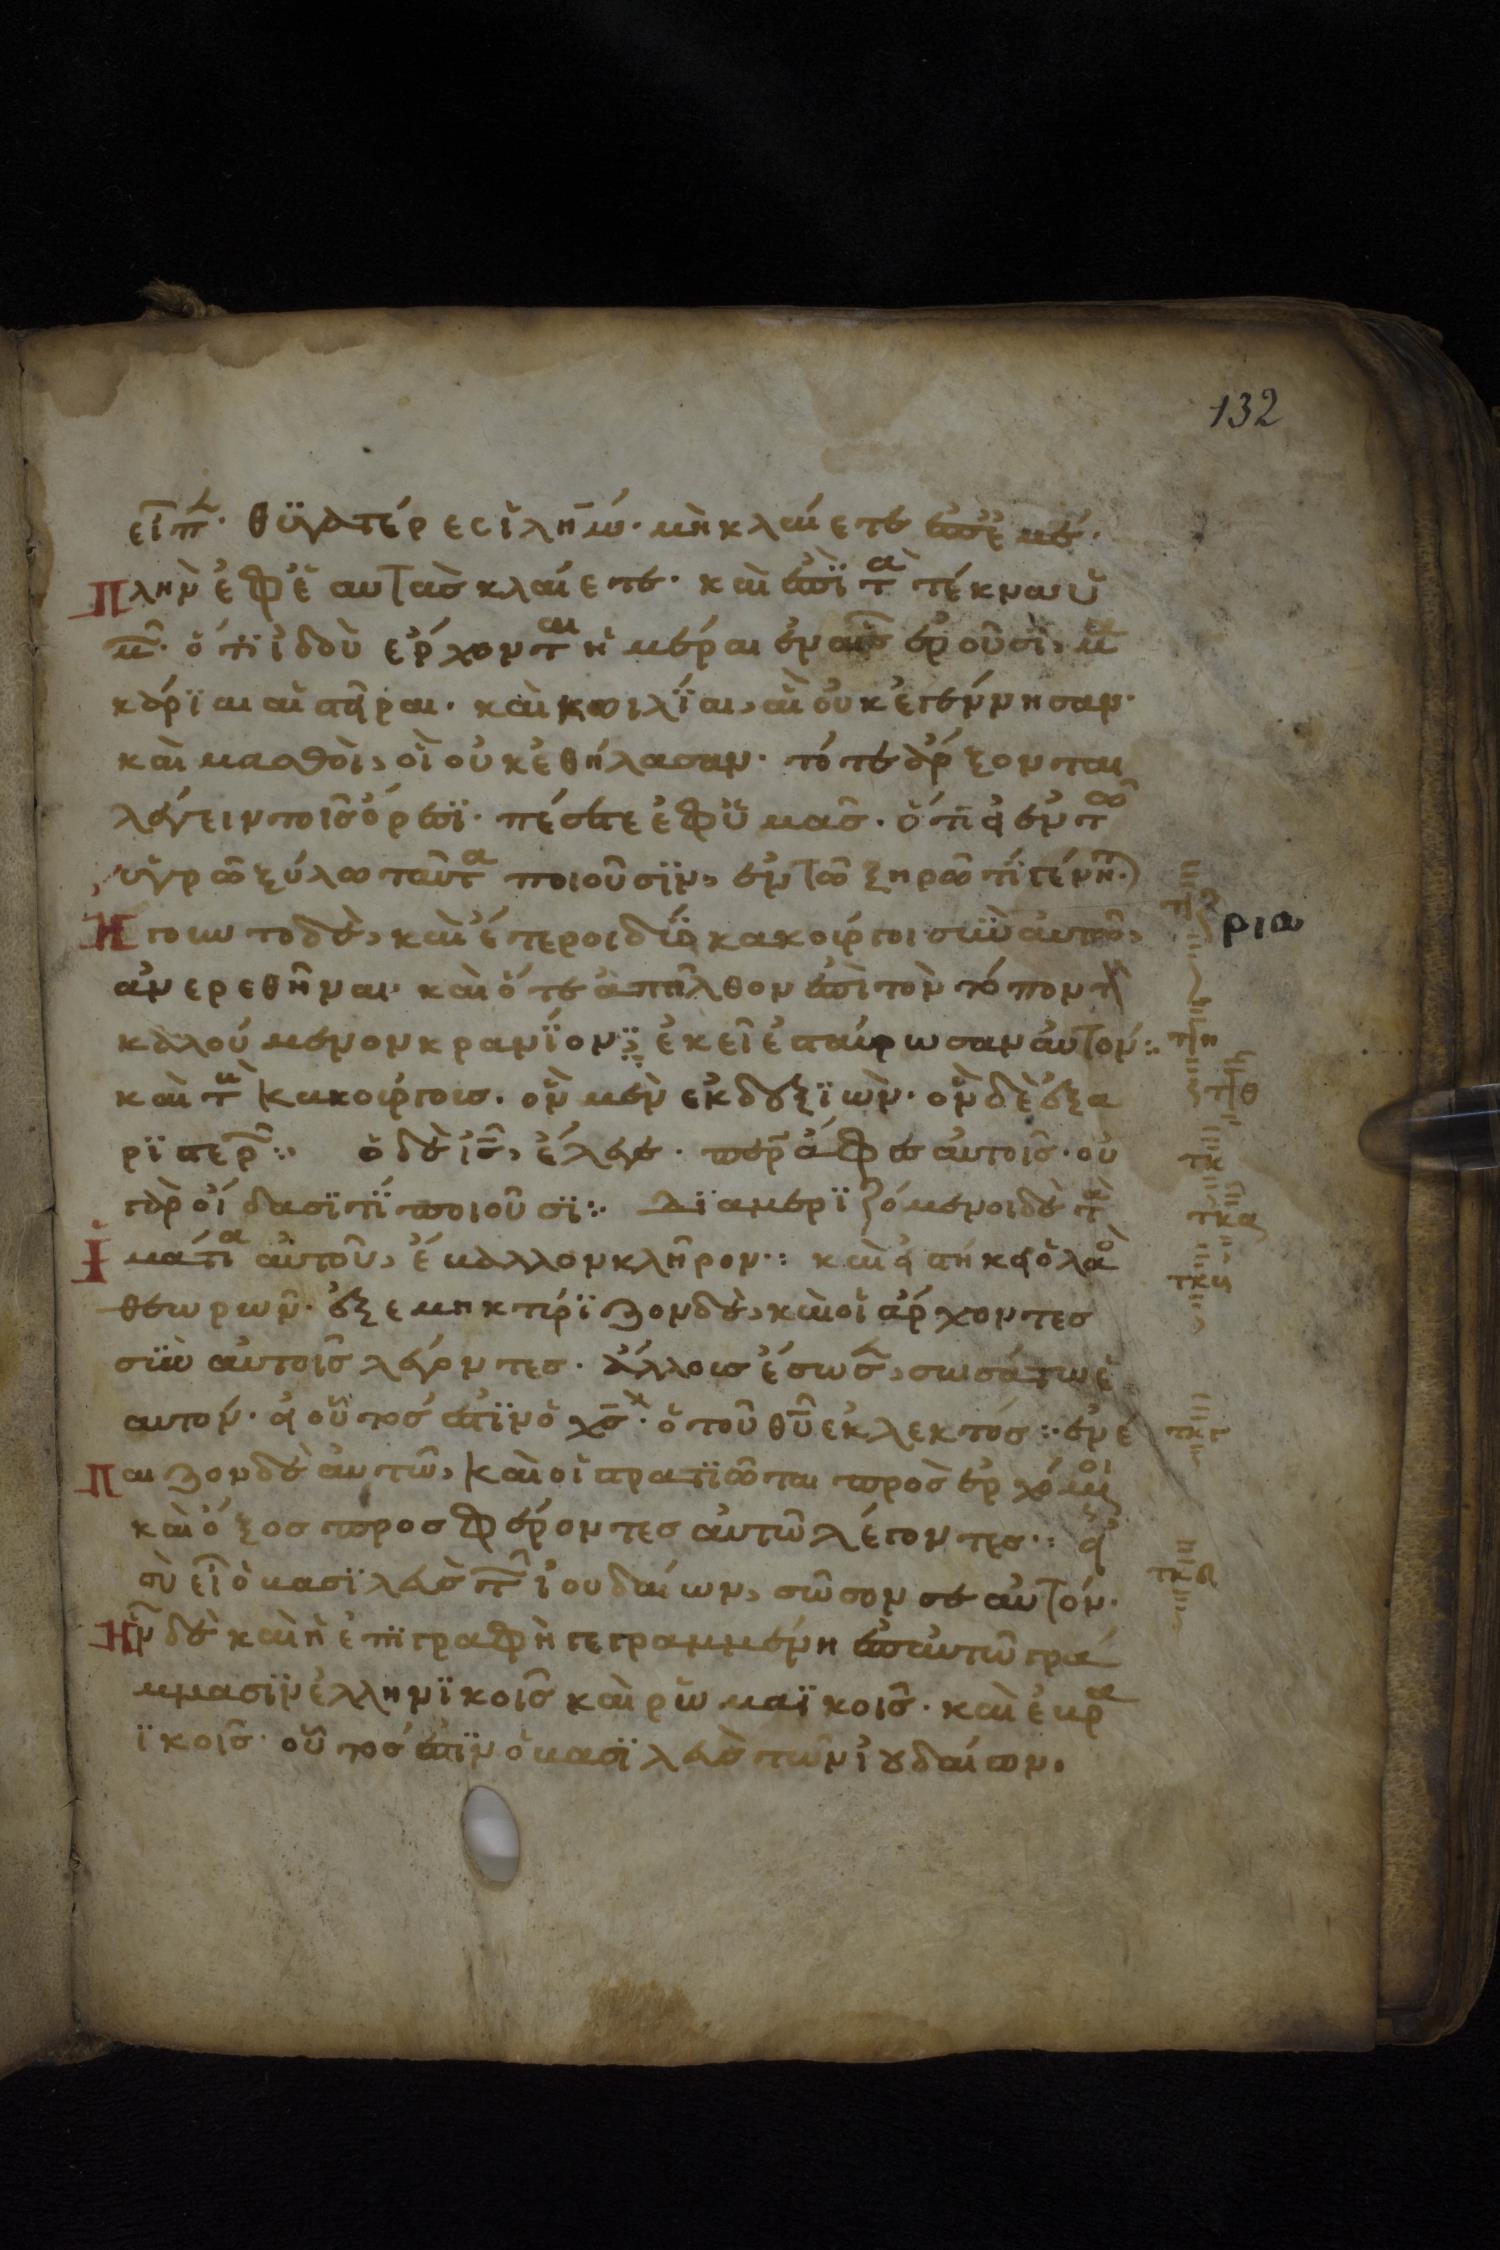 132
εἶπ̅· θϋγατέρεσ ἰλη̅μ· μὴ κλαίετε ἐπ' ἐμέ·
πλὴν ἐφ' ἑαυτὰσ κλαίετε· καὶ ἐπῒ τ̅ὰ τέκνα ὑ
μ̅· ὅτϊ ἰδοὺ ἔρχοντ̅αι ἡμέραι ἐν αἷσ ἐροῦσϊ, μ̅α
κάρϊαι αἱ στεῖραι· καὶ κοιλίαι, αἳ οὐκ ἐγέννησαν·
καὶ μασθοὶ, οἳ οὐκ ἐθήλασαν· τότε ἄρξονται
λέγειν τοῖσ ὄρεσϊ· πέσετε ἐφ' ὑμᾶσ· ὅτι εἰ ἐν τ̅ῶ
ὑγρῶ ξύλω ταῦτ̅α ποιοῦσϊν, ἐν τῶ ξηρῶ τί γένη·
ἤγοιντο δὲ, καὶ ἕτεροι δύο κακοῦργοι σὺν αὐτῶ,
ἀνερεθῆναι· καὶ ὅτε ἀπῆλθον ἐπὶ τὸν τόπον τὸν
καλούμενον κρανίον, ἐκεῖ ἐσταύρωσαν αὐτόν:
καὶ τ̅οὺσ κακούργουσ· ὃν μὲν ἐκ δεξϊῶν· ὃν δὲ ἐξ α
ρϊστερ̅: ὁ δὲ ἰ̅σ̅, ἔλεγε· π̅ε̅ρ ἄφεσ αὐτοῖσ· οὐ
γὰρ οἴδασϊ τί ποιοῦσϊ: Διαμερϊζόμενοι δὲ τ̅ὰ
ἱμάτι̅α αὐτοῦ, ἔβαλλον κλῆρον: καὶ εἱστήκει ὁ λαὸ
θεωρων· ἐξεμηκτήρϊζον δὲ, καὶ οἱ ἄρχοντεσ
σὺν αὐτοῖσ λέγοντεσ· ἄλλουσ ἔσωσ̅, σωσάτω ἑ
αυτον· εἰ οὗτόσ ἐστϊν ὁ χ̅σ̅· ὁ τοῦ θ̅υ̅ ἐκλεκτόσ: ἐνέ
παιζον δὲ αὐτῶ, καὶ οἱ στρατϊῶται προσερχόμενοι
καὶ ὄξοσ προσφέροντεσ αὐτῶ λέγοντεσ: εἰ
σὺ εἶ ὁ βασϊλεὺσ τ̅ῶν ἰουδαίων, σῶσον σεαυτόν·
ἦν δὲ καὶ ἡ ἐπϊγραφὴ γεγραμμένη ἐπ' αὐτῶ γρά
μμασϊν ἑλληνϊκοῖσ καὶ ῥωμαϊκοῖσ· καὶ ἑβρ̅α
ϊκοῖσ· οὗτόσ ἐστϊν ὁ βασϊλεὺσ τῶν ἰουδαίων.
ρια
τιη
τιθ
τκ
τκα